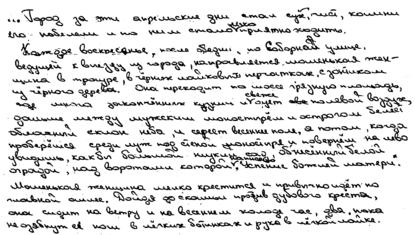 ... Город за эти апрельские дни стал сух, чист, камни
его побелели и по ним стало легко приятно ходить.
Каждое воскресенье, после обедни, по Соборной улице,
ведущей к выезду из города, направляется маленькая жен-
щина в трауре, в чёрных лайковых перчатках, с зонтиком
из чёрного дерева. Она переходит по шоссе грязную площадь,
где много закопчённых кузниц и свежо дует полевой воздух,
дальше, между мужским монастырём и острогом белеет
облачный склон неба и сереет весеннее поле, а потом, когда
проберёшься среди луж под стеной монастыря и повернёшь на лево
увидишь, как бы большой низкий сад, обнесённый белой
оградой, над воротами которой Успение божией матери.
Маленькая женщина мелко крестится и привычно идёт по
главной аллее. Дойдя до скамьи против дубового креста,
она сидит на ветру и на весеннем холоде час, два, пока
не озябнут её ноги в лёгких ботинках и рука в лёгкой лайке.